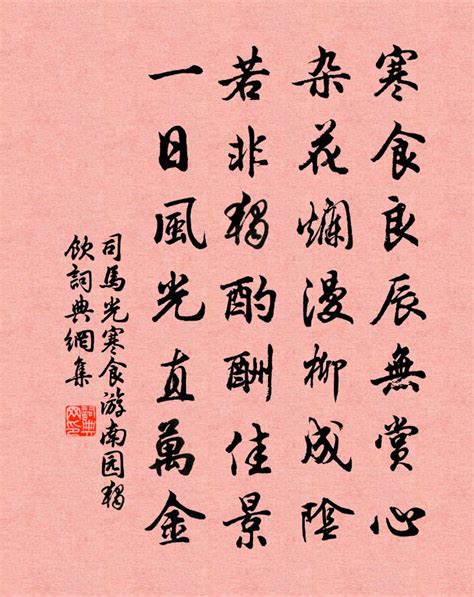 寒食良辰無賞心
杂花爛漫柳成陰
若非獨酌酬佳景
一日風光直萬金
司馬光寒食游南园獨
飲詞典網集